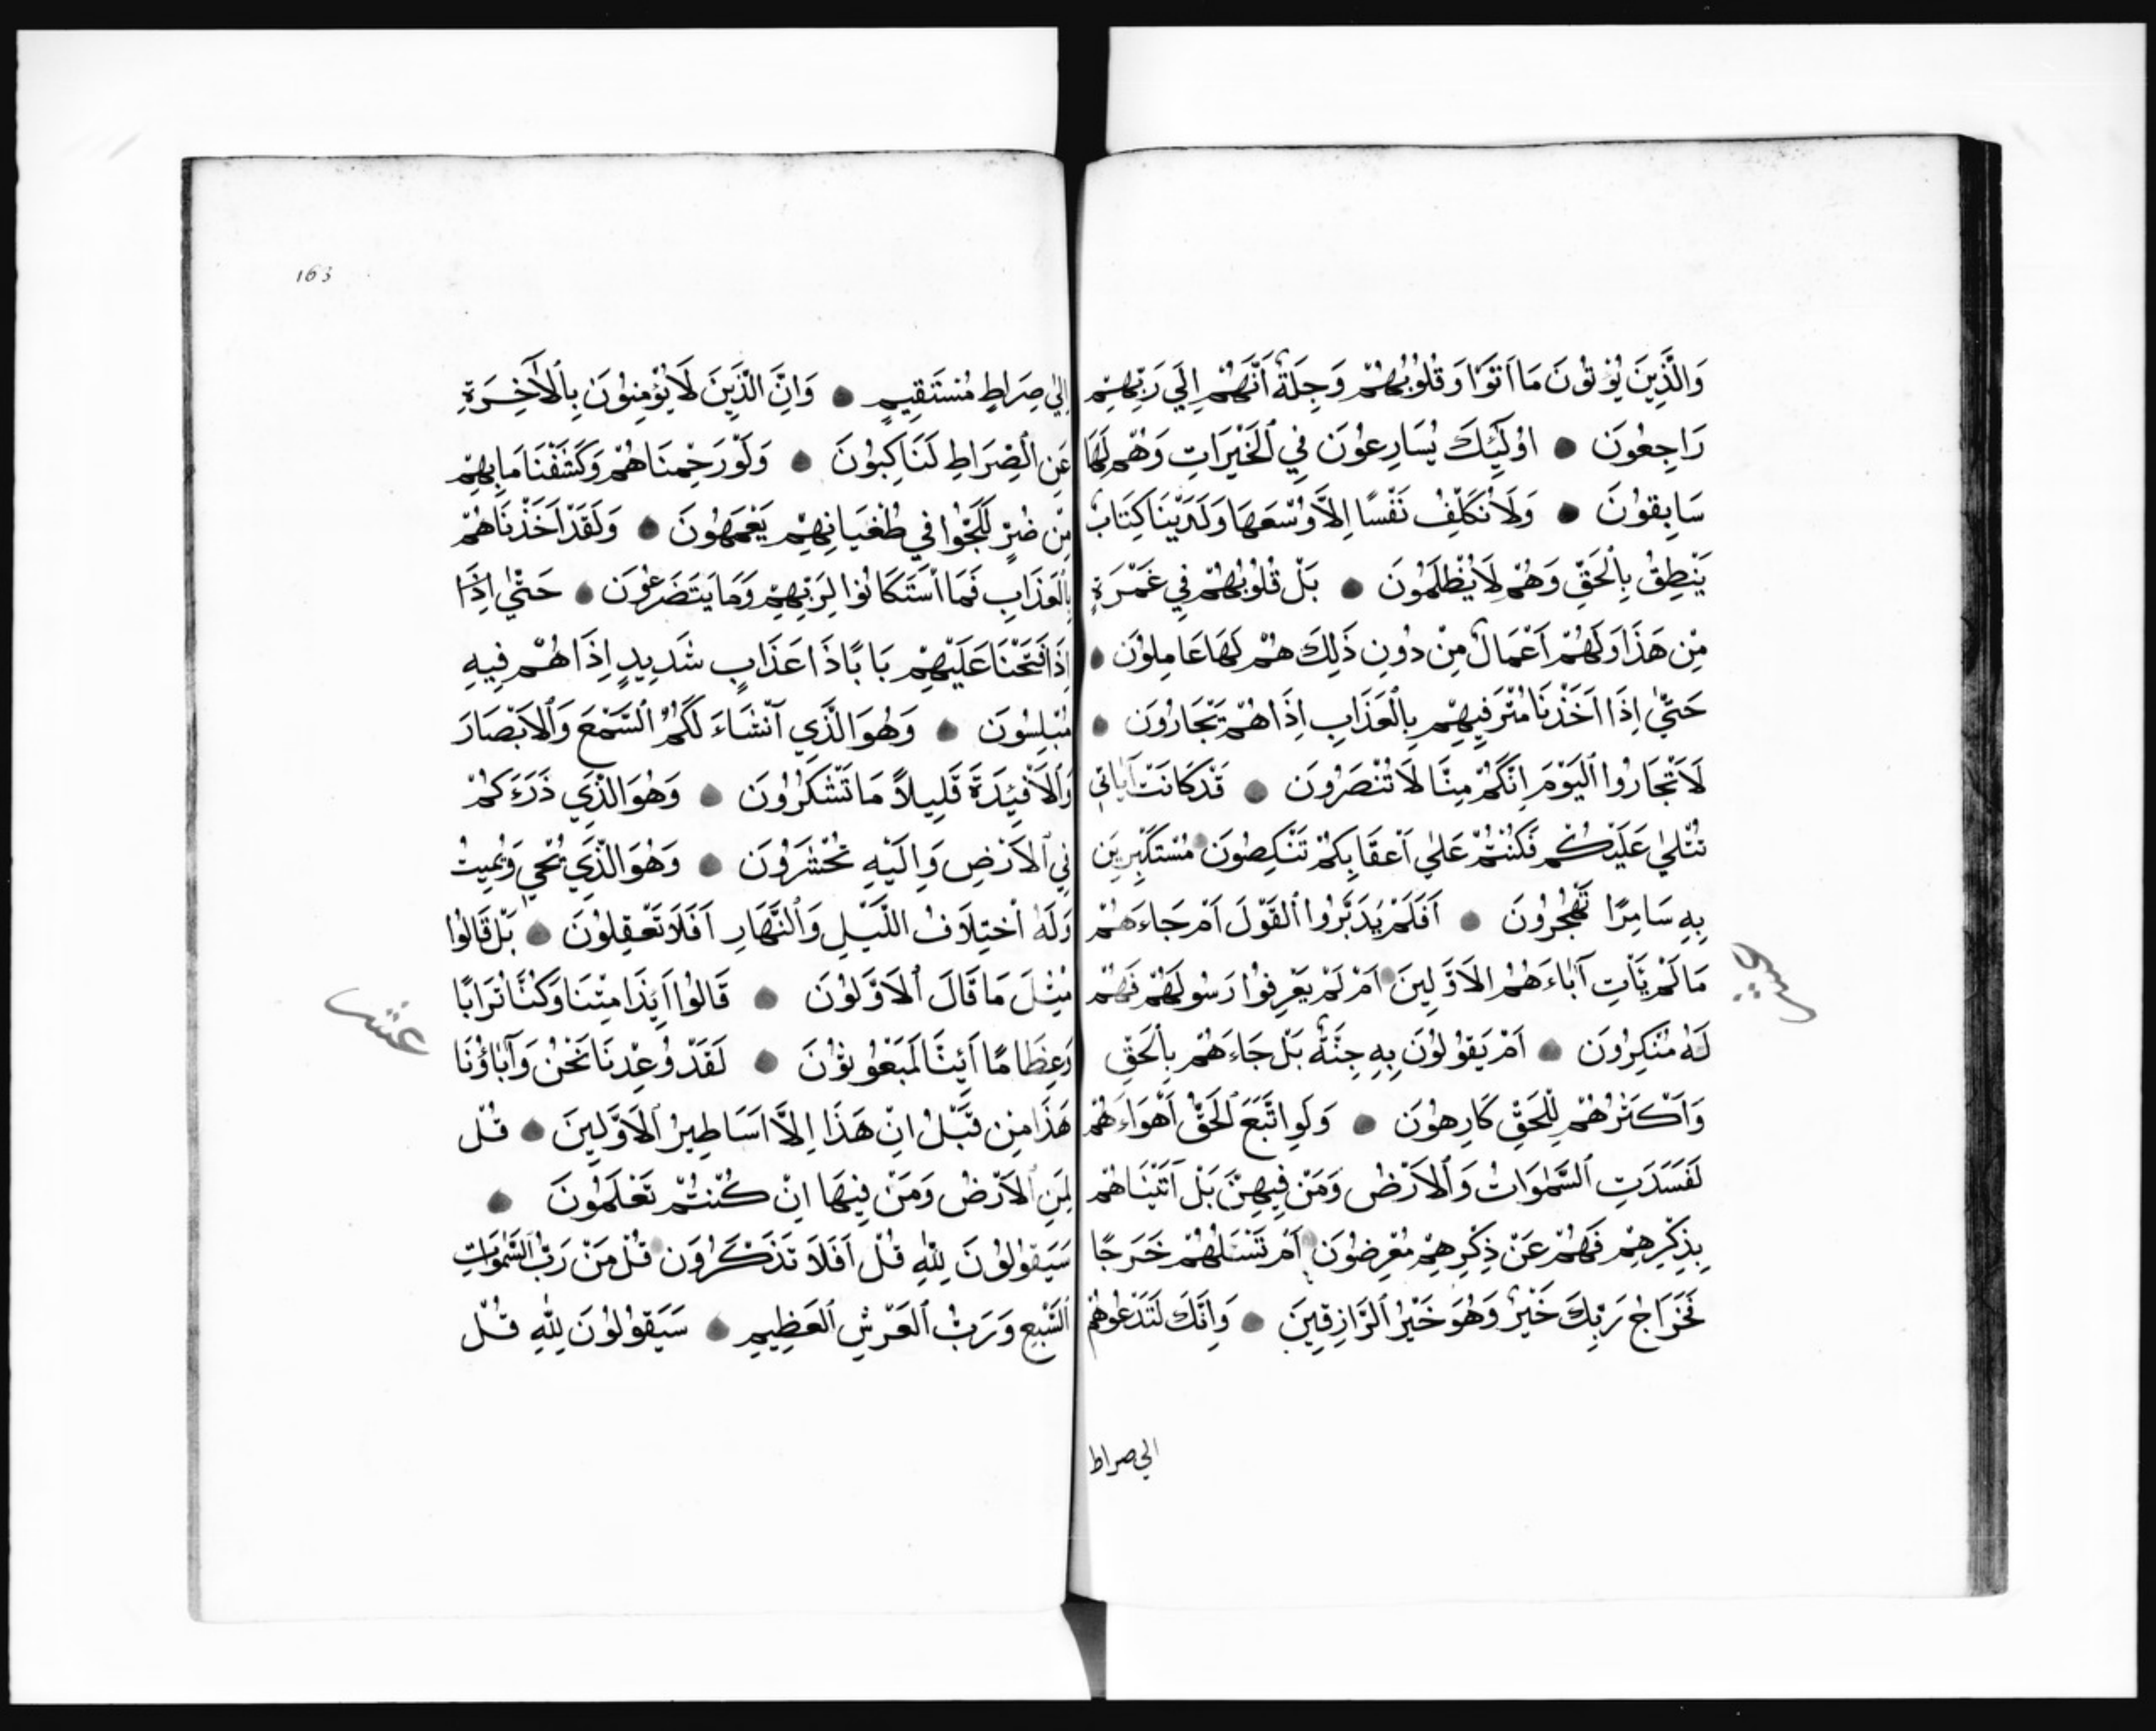 وَالَّذِينَ يُؤْتُونَ مَا اَتَوْا وَقُلُوبُهُمْ وَجِلَةٌ اَنَّهُمْ اِلَي رَبِّهِمْ
رَاجِعُونَ ● اُولَئِكَ يُسَارِعُونَ فِي الْخَيْرَاتِ وَهُمْ لَهَا
سَابِقُونَ ● وَلَا نُكَلِّفُ نَفْسًا اِلَّا وُسْعَهَا وَلَدَيْنَا كِتَابٌ
يَنْطِقُ بِالْحَقِّ وَهُمْ لَا يُظْلَمُونَ ● بَلْ قُلُوبُهُمْ فِي غَمْرَةٍ
مِنْ هَذَا وَلَهُمْ اَعْمَالٌ مِنْ دُونِ ذَلِكَ هُمْ لَهَا عَامِلُونَ ●
حَتَّي اِذَا اَخَذْنَا مُتْرَفِيهِمْ بِالْعَذَابِ اِذَا هُمْ تَجْارُونَ ●
لَا تَجْارُوا الْيَوْمَ اِنَّكُمْ مِنَّا لَا تُنْصَرُونَ ● قَدْ كَانَتْ آيَاتِي
تُتْلَي عَلَيْكُمْ فَكُنْتُمْ عَلَي اَعْقَابِكُمْ تَنْكِصُونَ ● مُسْتَكْبِرِينَ
بِهِ سَامِرًا تَهْجُرُونَ ● اَفَلَمْ يَدَّبَّرُوا الْقَوْلَ اَمْ جَاءَهُمْ
مَا لَمْ يَأْتِ آبَاءَهُمُ الْاَوَّلِينَ ● اَمْ لَمْ يَعْرِفُوا رَسُولَهُمْ فَهُمْ
لَهُ مُنْكِرُونَ ● اَمْ يَقُولُونَ بِهِ جِنَّةٌ بَلْ جَاءَهُمْ بِالْحَقِّ
وَاَكْثَرُهُمْ لِلْحَقِّ كَارِهُونَ ● وَلَوِ اتَّبَعَ الْحَقُّ اَهْوَاءَهُمْ
لَفَسَدَتِ السَّمٰوَاتُ وَالْاَرْضُ وَمَنْ فِيهِنَّ بَلْ آتَيْنَاهُمْ
بِذِكْرِهِمْ فَهُمْ عَنْ ذِكْرِهِمْ مُعْرِضُونَ ● اَمْ تَسْئَلُهُمْ خَرَجًا
فَخَرَاجُ رَبِّكَ خَيْرٌ وَهُوَ خَيْرُ الرَّازِقِينَ ● وَاِنَّكَ لَتَدْعُوهُمْ
الي صراط
163
اِلَي صِرَاطٍ مُسْتَقِيمٍ ● وَاِنَّ الَّذِينَ لَا يُؤْمِنُونَ بِالْآخِرَةِ
عَنِ الصِّرَاطِ لَنَاكِبُونَ ● وَلَوْ رَحِمْنَاهُمْ وَكَشَفْنَا مَا بِهِمْ
مِنْ ضُرٍّ لَلَجُّوا فِي طُغْيَانِهِمْ يَعْمَهُونَ ● وَلَقَدْ اَخَذْنَاهُمْ
بِالْعَذَابِ فَمَا اسْتَكَانُوا لِرَبِّهِمْ وَمَا يَتَضَرَعُونَ ● حَتَّي اِذَا
اِذَا فَتَحْنَا عَلَيْهِمْ بَابًا ذَا عَذَابٍ شَدِيدٍ اِذَا هُمْ فِيهِ
مُبْلِسُونَ ● وَهُوَ الَّذِي اَنْشَاءَ لَكُمُ السَّمْعَ وَالْاَبْصَارَ
وَالْاَفْئِدَةَ قَلِيلًا مَا تَشْكُرُونَ ● وَهُوَ الَّذِي ذَرَءَكُمْ
فِي الْاَرْضِ وَاِلَيْهِ تُحْشَرُونَ ● وَهُوَ الَّذِي يُحْيِ وَيُمِيتُ
وَلَهُ اخْتِلَافُ اللَّيْلِ وَالنَّهَارِ اَفَلَا تَعْقِلُونَ ● بَلْ قَالُوا
مِثْلَ مَا قَالَ الْاَوَّلُونَ ● قَالُوا اَئِذَا مِتْنَا وَكُنَّا تُرَابًا
وَعِظَامًا اَئِنَّا لَمَبْعُوثُونَ ● لَقَدْ وُعِدْنَا نَحْنُ وَآبَاؤُنَا
هَذَا مِنْ قَبْلُ اِنْ هَذَا اِلَّا اَسَاطِيرُ الْاَوَّلِينَ ● قُلْ
لِمَنِ الْاَرْضُ وَمَنْ فِيهَا اِنْ كُنْتُمْ تَعْلَمُونَ ●
سَيَقُولُونَ لِلّٰهِ قُلْ اَفَلَا تَذَكَّرُونَ ● قُلْ مَنْ رَبُّ السَّمٰوَاتِ
السَّبْعِ وَرَبُّ الْعَرْشِ الْعَظِيمِ ● سَيَقُولُونَ لِلّٰهِ قُلْ
عشر